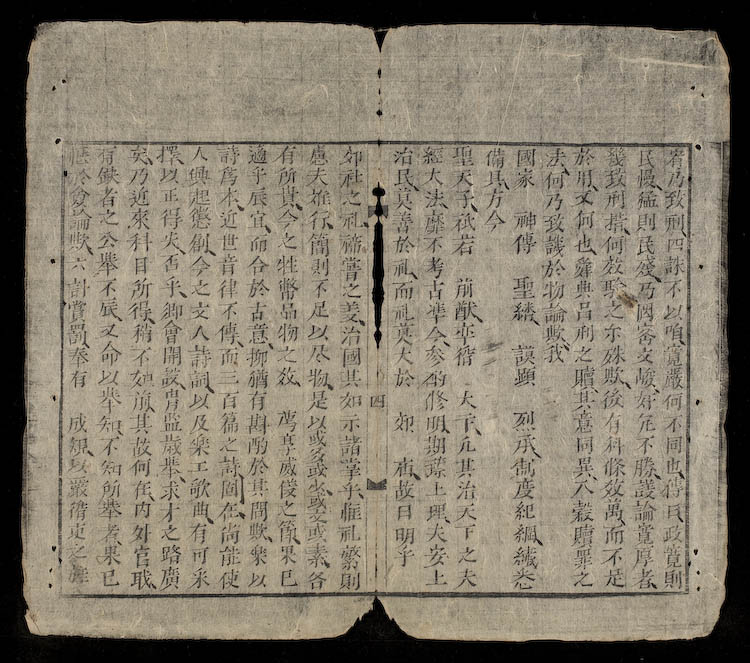 宥乃致刑四誅不以咱寬嚴何不同也傳曰政寬則
民慢猛則民殘乃因審文峻好先不勝議論寬厚者
幾致刑措何效驗之亦殊歟後有科條效萬而不足
於用又何也舜典呂刑之贖其意同異入穀贖罪之
法何乃致譏於物論歟我
國家 神傳 聖繼 謨顯 烈承制度紀綱纖悉
備具方今
聖天子祗若 前猷率循 大卞凡其治天下之大
經大法靡不考古準今參酌修明期臻上理夫安上
治民莫善於礼而礼莫大於 郊 廟故曰明乎
四
郊社之礼禘嘗之義治國其如示諸掌乎惟礼繁則
慮夫难行簡則不足以尽物是以或多或少或文或素各
有所貴今之牲幣品物之效 薦享威儀之節果已
適乎辰宜而合於古意抑猶有斟酌於其間歟樂以
詩為本近世音律不傳而三百篇之詩固在尚能使
人興起懲創今之文人詩詞以及樂工歌曲有可采
擇以正得失否乎鄉會開設胄监歲舉求才之路廣
矣乃近來科目所得稍不如前其故何在内外官职
有缺者之公舉不辰又命以舉知不知所舉者果已
愜於僉論歟六計賞罰奉有 成規以嚴循吏之